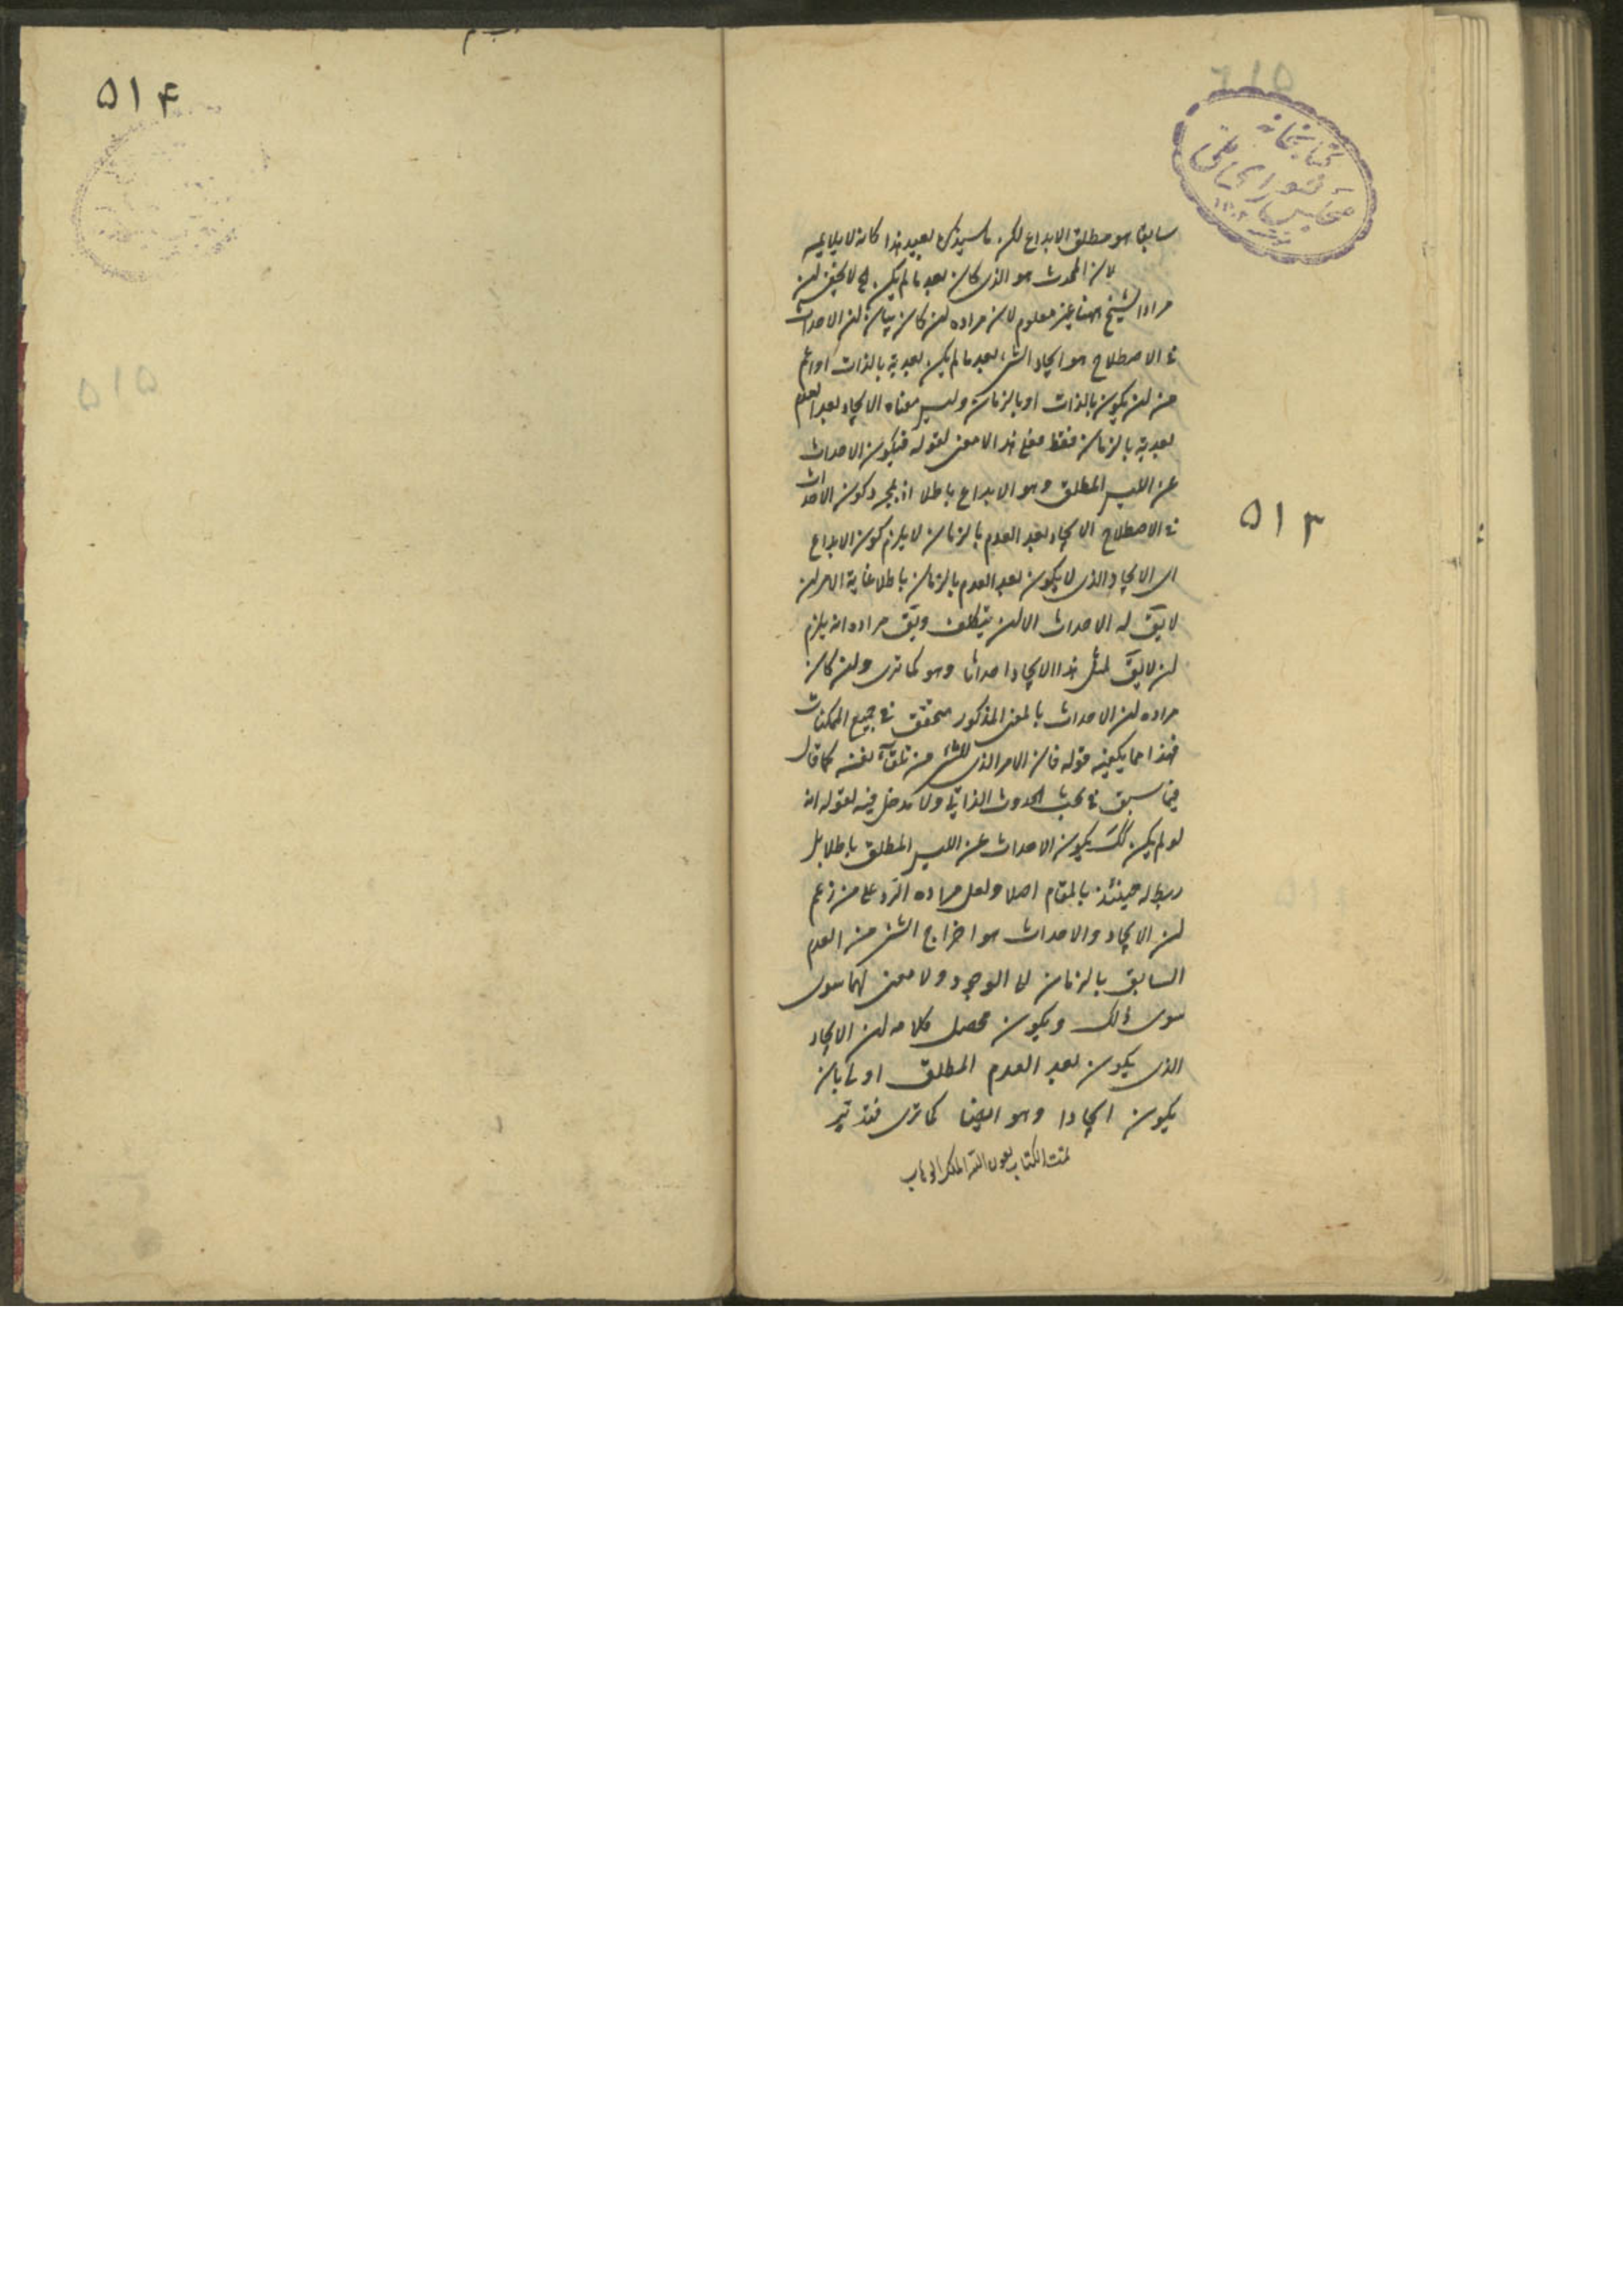 سابقا هو مطلق الابداع لكن ما سيذكره بعيد هذا كانه لا يلايمه
لان المحدث هو الذى كان بعد ما لم يكن الخ لا يخفى ان
مراد الشيخ ههنا غير معلوم لان مراده ان كان بيان ان الاحداث
فى الاصطلاح هو ايجاد الشئ بعد ما لم يكن بعدية بالذات او اعم
من ان يكون بالذات او بالزمان وليس معناه الايجاد بعد العدم
بعدية بالزمان فقط فعلى هذا لا معنى لقوله فيكون الاحداث
عن الليس المطلق وهو الابداع باطلا اذ بمجرد كون الاحداث
فى الاصطلاح الايجاد بعد العدم بالزمان لا يلزم كون الابداع
اى الايجاد الذى لا يكون بعد العدم بالزمان باطلا غاية الامر ان
لا يق له الاحداث الا ان يتكلف ويق مراده انه يلزم
ان لا يق لمثل هذا الايجاد احداثا وهو كما ترى وان كان
مراده ان الاحداث بالمعنى المذكور متحقق فى جميع الممكنات
فهذا مما يكفيه قوله فان الامر الذى للشئ من تلقاء نفسه كما قال
فيما سبق فى بحث الحدوث الذاتى ولا مدخل فيه لقوله انه
لو لم يكن كك يكون الاحداث عن الليس المطلق باطلا بل
ربط له حينئذ بالمقام اصلا ولعل مراده الرد على من زعم
ان الايجاد والاحداث هو اخراج الشئ من العدم
السابق بالزمان الى الوجود ولا معنى لهما سوى
سوى ذلك ويكون محصل كلامه ان الايجاد
الذى يكون بعد العدم المطلق اولى بان
يكون ايجادا وهو ايضا كما ترى فتدبر
تمت الكتاب بعون الله الملك الوهاب
۵۱۳
كتابخانه
مجلس شوراى ملى
۵۱۴
۵۱۵